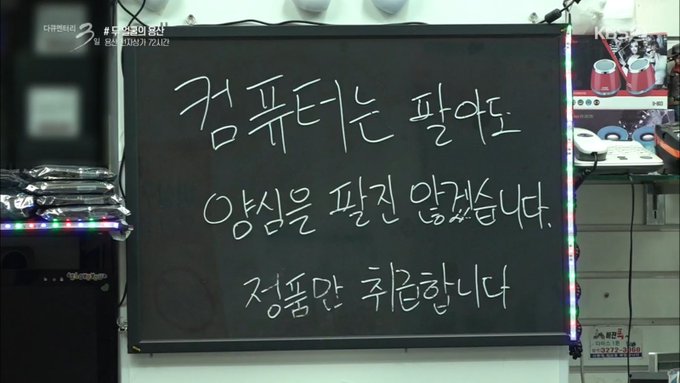 다큐멘터리 3일
# 두 얼굴의 용산
용산 전자상가 72시간
KBS
컴퓨터는 팔아도
양심을 팔진 않겠습니다.
정품만 취급합니다
비전폭
3272-3369